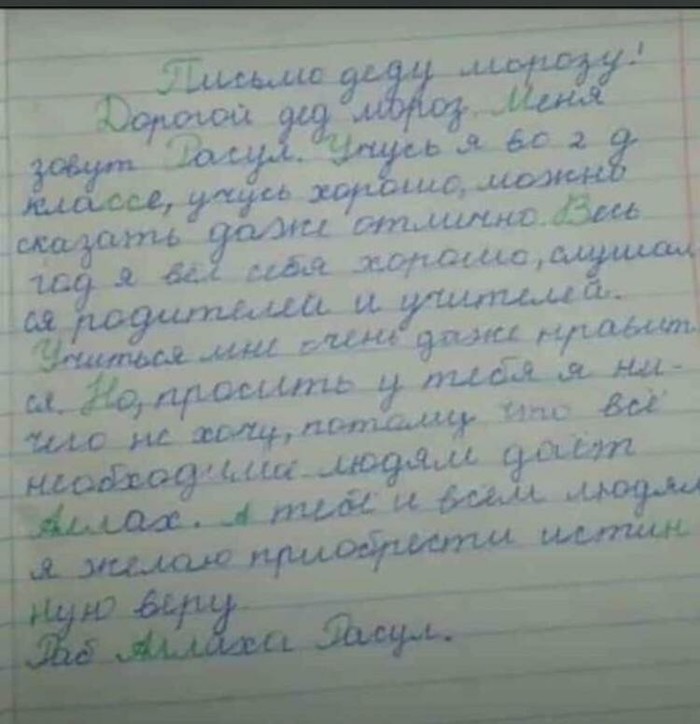 Письмо деду морозу!
Дорогой дед мороз. Меня
зовут Расул. Учусь я во 2 д
классе, учусь хорошо, можно
сказать даже отлично. Весь
год я вёл себя хорошо, слушал
ся родителей и учителей.
Учиться мне очень даже нравит
ся. Но, просить у тебя я ни-
чего не хочу, потому что всё
необходимое людям даёт
Аллах. А тебе и всем людям
я желаю приобрести истин
ную веру
Раб Аллаха Расул.